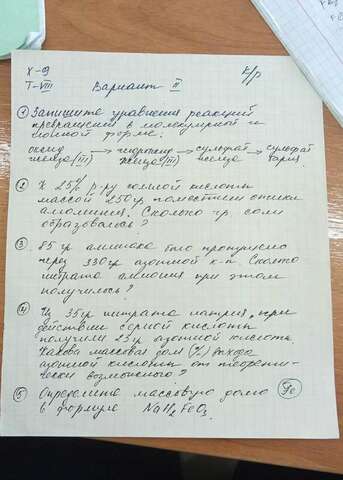 Х-9 к/р
Т-VIII Вариант II
① Запишите уравнения реакций
превращений в молекулярной и
ионной форме:
оксид → гидроксид → сульфат → сульфат
железа(III) железа(III) железа бария
② К 25% р-ру соляной кислоты
массой 250 гр поместили опилки
алюминия. Сколько гр соли
образовалось?
③ 85 гр аммиака было пропущено
через 330 гр азотной к-ты. Сколько
нитрата аммония при этом
получилось?
④ Из 35 гр нитрата натрия при
действии серной кислоты
получили 23 гр азотной кислоты
Какова массовая доля (%) выхода
азотной кислоты от теорети-
чески возможного?
⑤ Определите массовую долю Fe
в формуле NaH₂FeO₃